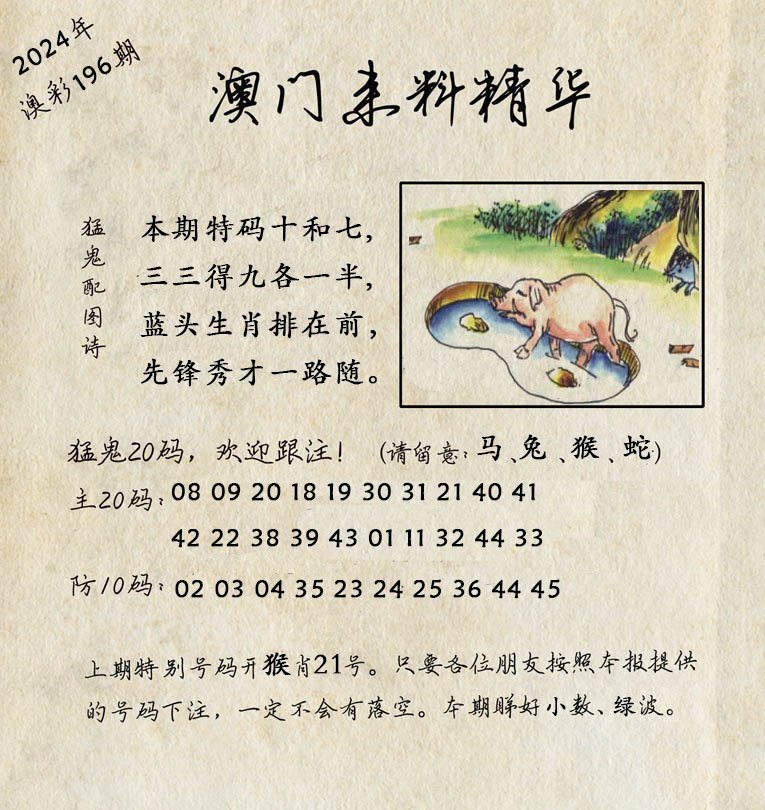 2024年
澳彩196期
澳门来料精华
猛鬼配图诗
本期特码十和七，
三三得九各一半，
蓝头生肖排在前，
先锋秀才一路随。
猛鬼20码，欢迎跟注！（请留意：马、兔、猴、蛇）
主20码：08 09 20 18 19 30 31 21 40 41
42 22 38 39 43 01 11 32 44 33
防10码：02 03 04 35 23 24 25 36 44 45
上期特别号码开猴肖21号。只要各位朋友按照本报提供
的号码下注，一定不会有落空。本期睇好小数、绿波。